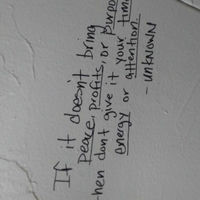 If it doesn't bring
peace, profits, or purpo
hen dont give it your tim
energy or attention.
- UNKNOWN